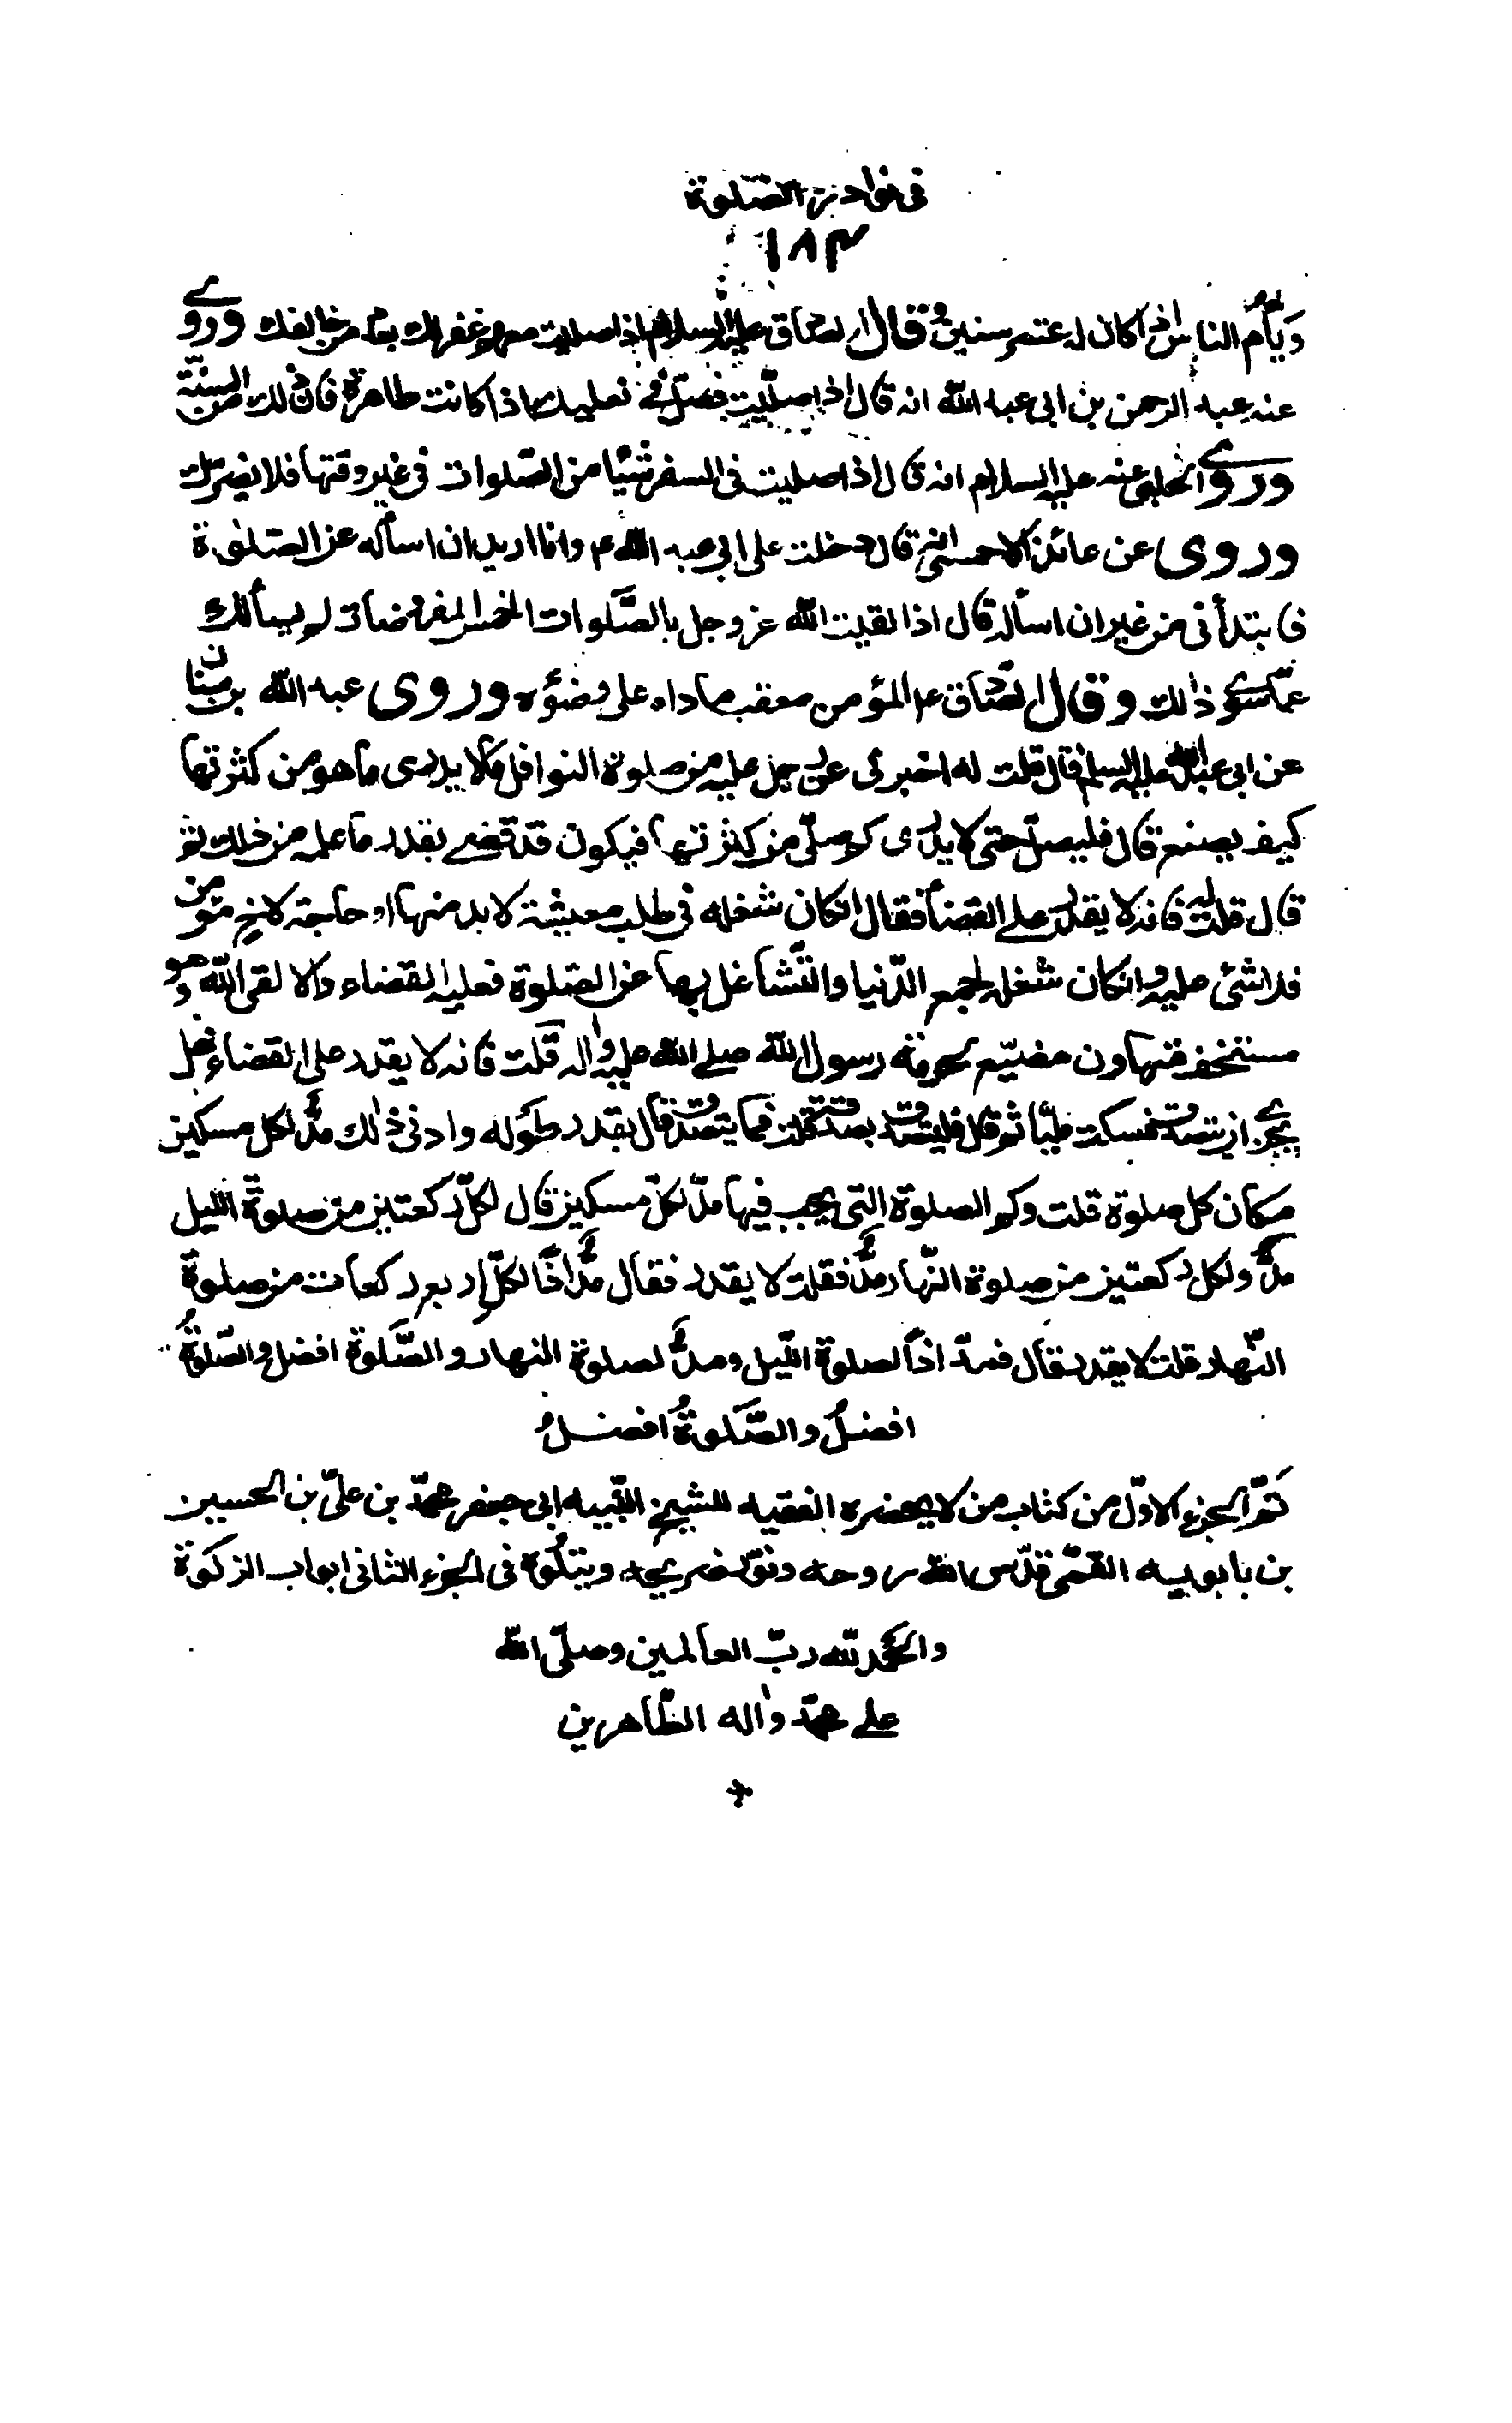 فى نوادر الصّلوة
١٨٣
ويأمّ الناس اذا كان له عشر سنين وقال الصّادق عليه السلام اذا صليت معهم غفر لك بعدد من خالفك وروى
عنه عبد الرحمن بن ابى عبد اللّه انه قال اذا صلّيت فصلّ فى نعليك اذا كانت طاهرة فانّ ذلك من السنّة
وروى الحلبى عنه عليه السلام انه قال اذا صليت فى السفر شيئا من الصّلوات فى غير وقتها فلا يضرّك
وروى عن عائذ الاحمسى انه قال دخلت على ابى عبد اللّه ع وانا اريد ان اسأله عن الصّلوة
فابتدأنى من غير ان اسأله قال اذا لقيت اللّه عز وجل بالصَّلوات الخمس المفروضات لم يسألك
عمّا سوى ذلك وقال الصّادق ع المؤمن معقب ما دام على وضوئه وروى عبد اللّه بن سنان
عن ابى عبد اللّه عليه السلام قال قلت له اخبرنى عن رجل عليه من صلوة النوافل ما لا يدرى ما هو من كثرتها
كيف يصنع قال فليصلّ حتى لا يدرى كم صلّى من كثرتها فيكون قد قضى بقدر ما علمه من ذلك ثم
قال قلت له فانه لا يقدر على القضاء فقال ان كان شغله فى طلب معيشة لا بد منها او حاجة لاخ مؤمن
فلا شئ عليه وان كان شغله لجمع الدّنيا والتَّشاغل بها عن الصّلوة فعليه القضاء والا لقى اللّه وهو
مستخف متهاون مضيّع لحرمة رسول اللّه صلى اللّه عليه واٰله قلت فانه لا يقدر على القضاء فهل
يجزى ان يتصدق فسكت مليّا ثم قال فليتصدق بصدقة قلت فما يتصدق قال بقدر طوله وادنى ذٰلك مدٌّ لكل مسكين
مكان كل صلوة قلت وكم الصلوة التى يجب فيها مدّ لكلّ مسكين قال لكلّ ركعتين من صلوة الليل
مدٌّ ولكل ركعتين من صلوة النّهار مدٌّ فقلت لا يقدر فقال مدٌّ اذًا لكلّ اربع ركعات من صلوة
النّهار قلت لا يقدر فقال فمدّ اذاً لصلوة اللّيل ومدٌّ لصلوة النهار والصَّلوة افضل والصّلوةُ
افضلُ والصَّلوةُ افضلُ
تمّ الجزء الاوّل من كتاب من لا يحضره الفقيه للشيخ النّبيه ابى جعفر محمّد بن علىّ بن الحسين
بن بابويه القمّى قدّس اللّه روحه ونوّر ضريحه ويتلوه فى الجزء الثانى ابواب الزكوة
والحمد للّه ربّ العالمين وصلّى اللّه
على محمّد واٰله الطّاهرين